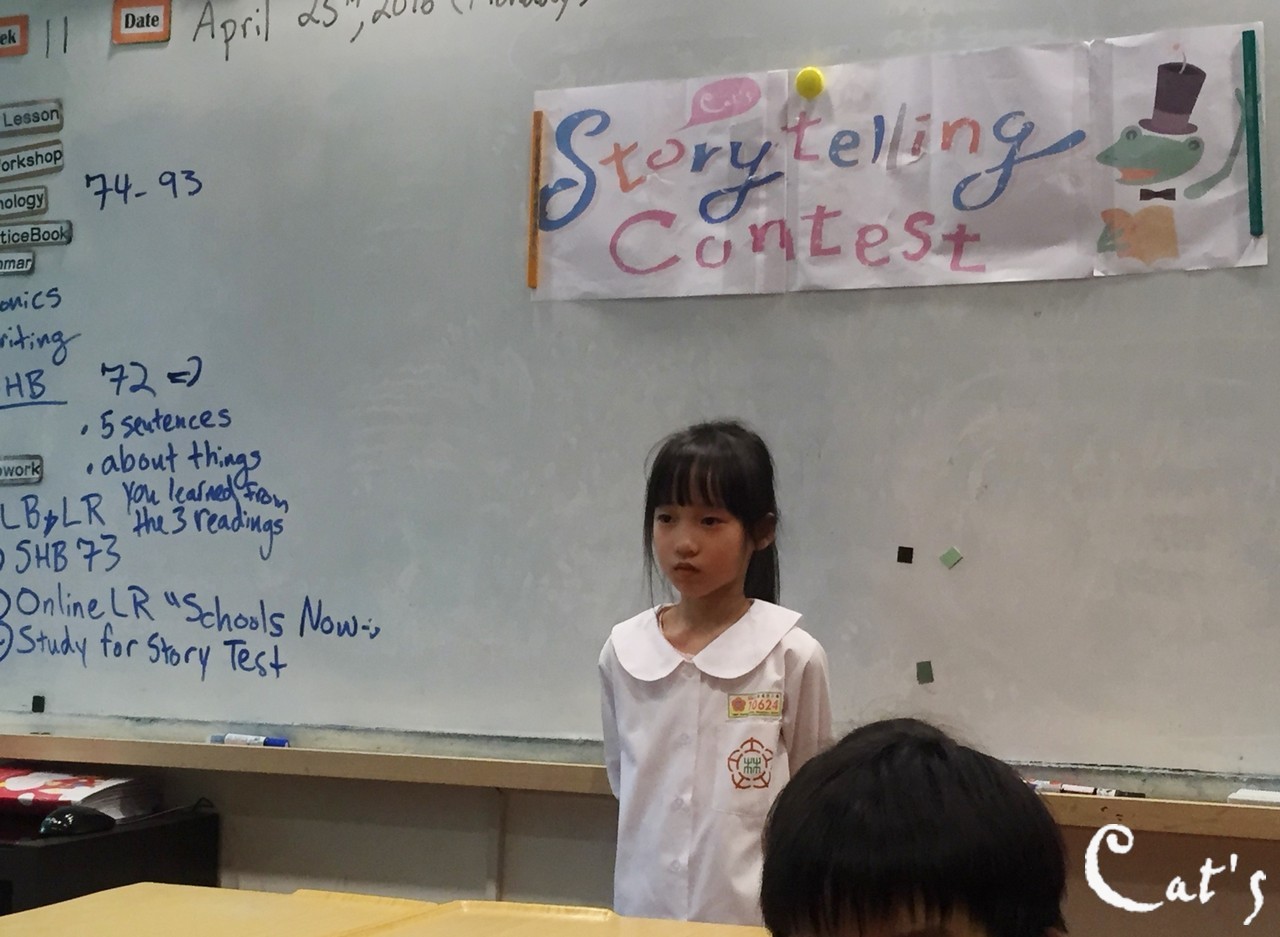 ek 11 Date April 25th, 2016 (Monday)
Cat's
Storytelling
Contest
Lesson
orkshop
nology 74-93
ticeBook
mmar
onics
riting
HB 72 =>
. 5 sentences
. about things
you learned from
the 3 readings
work
LB, LR
SHB 73
Online LR "Schools Now
Study for Story Test
10624
Cat's